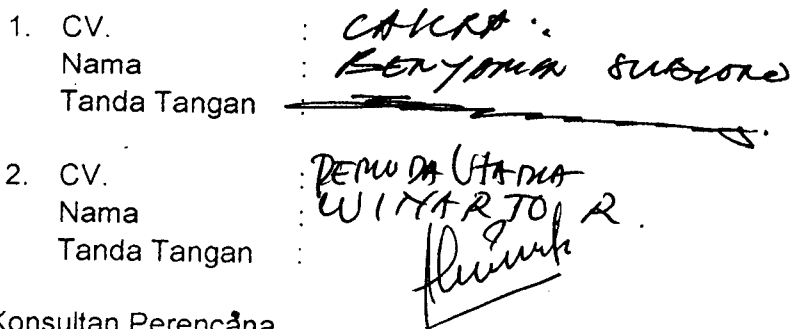 1. CV. : CAKRA.
Nama : BENYAMIN SUBIONO
Tanda Tangan :
2. CV. : PEMUDA UTAMA
Nama : WINARTO R.
Tanda Tangan :
Konsultan Perencana